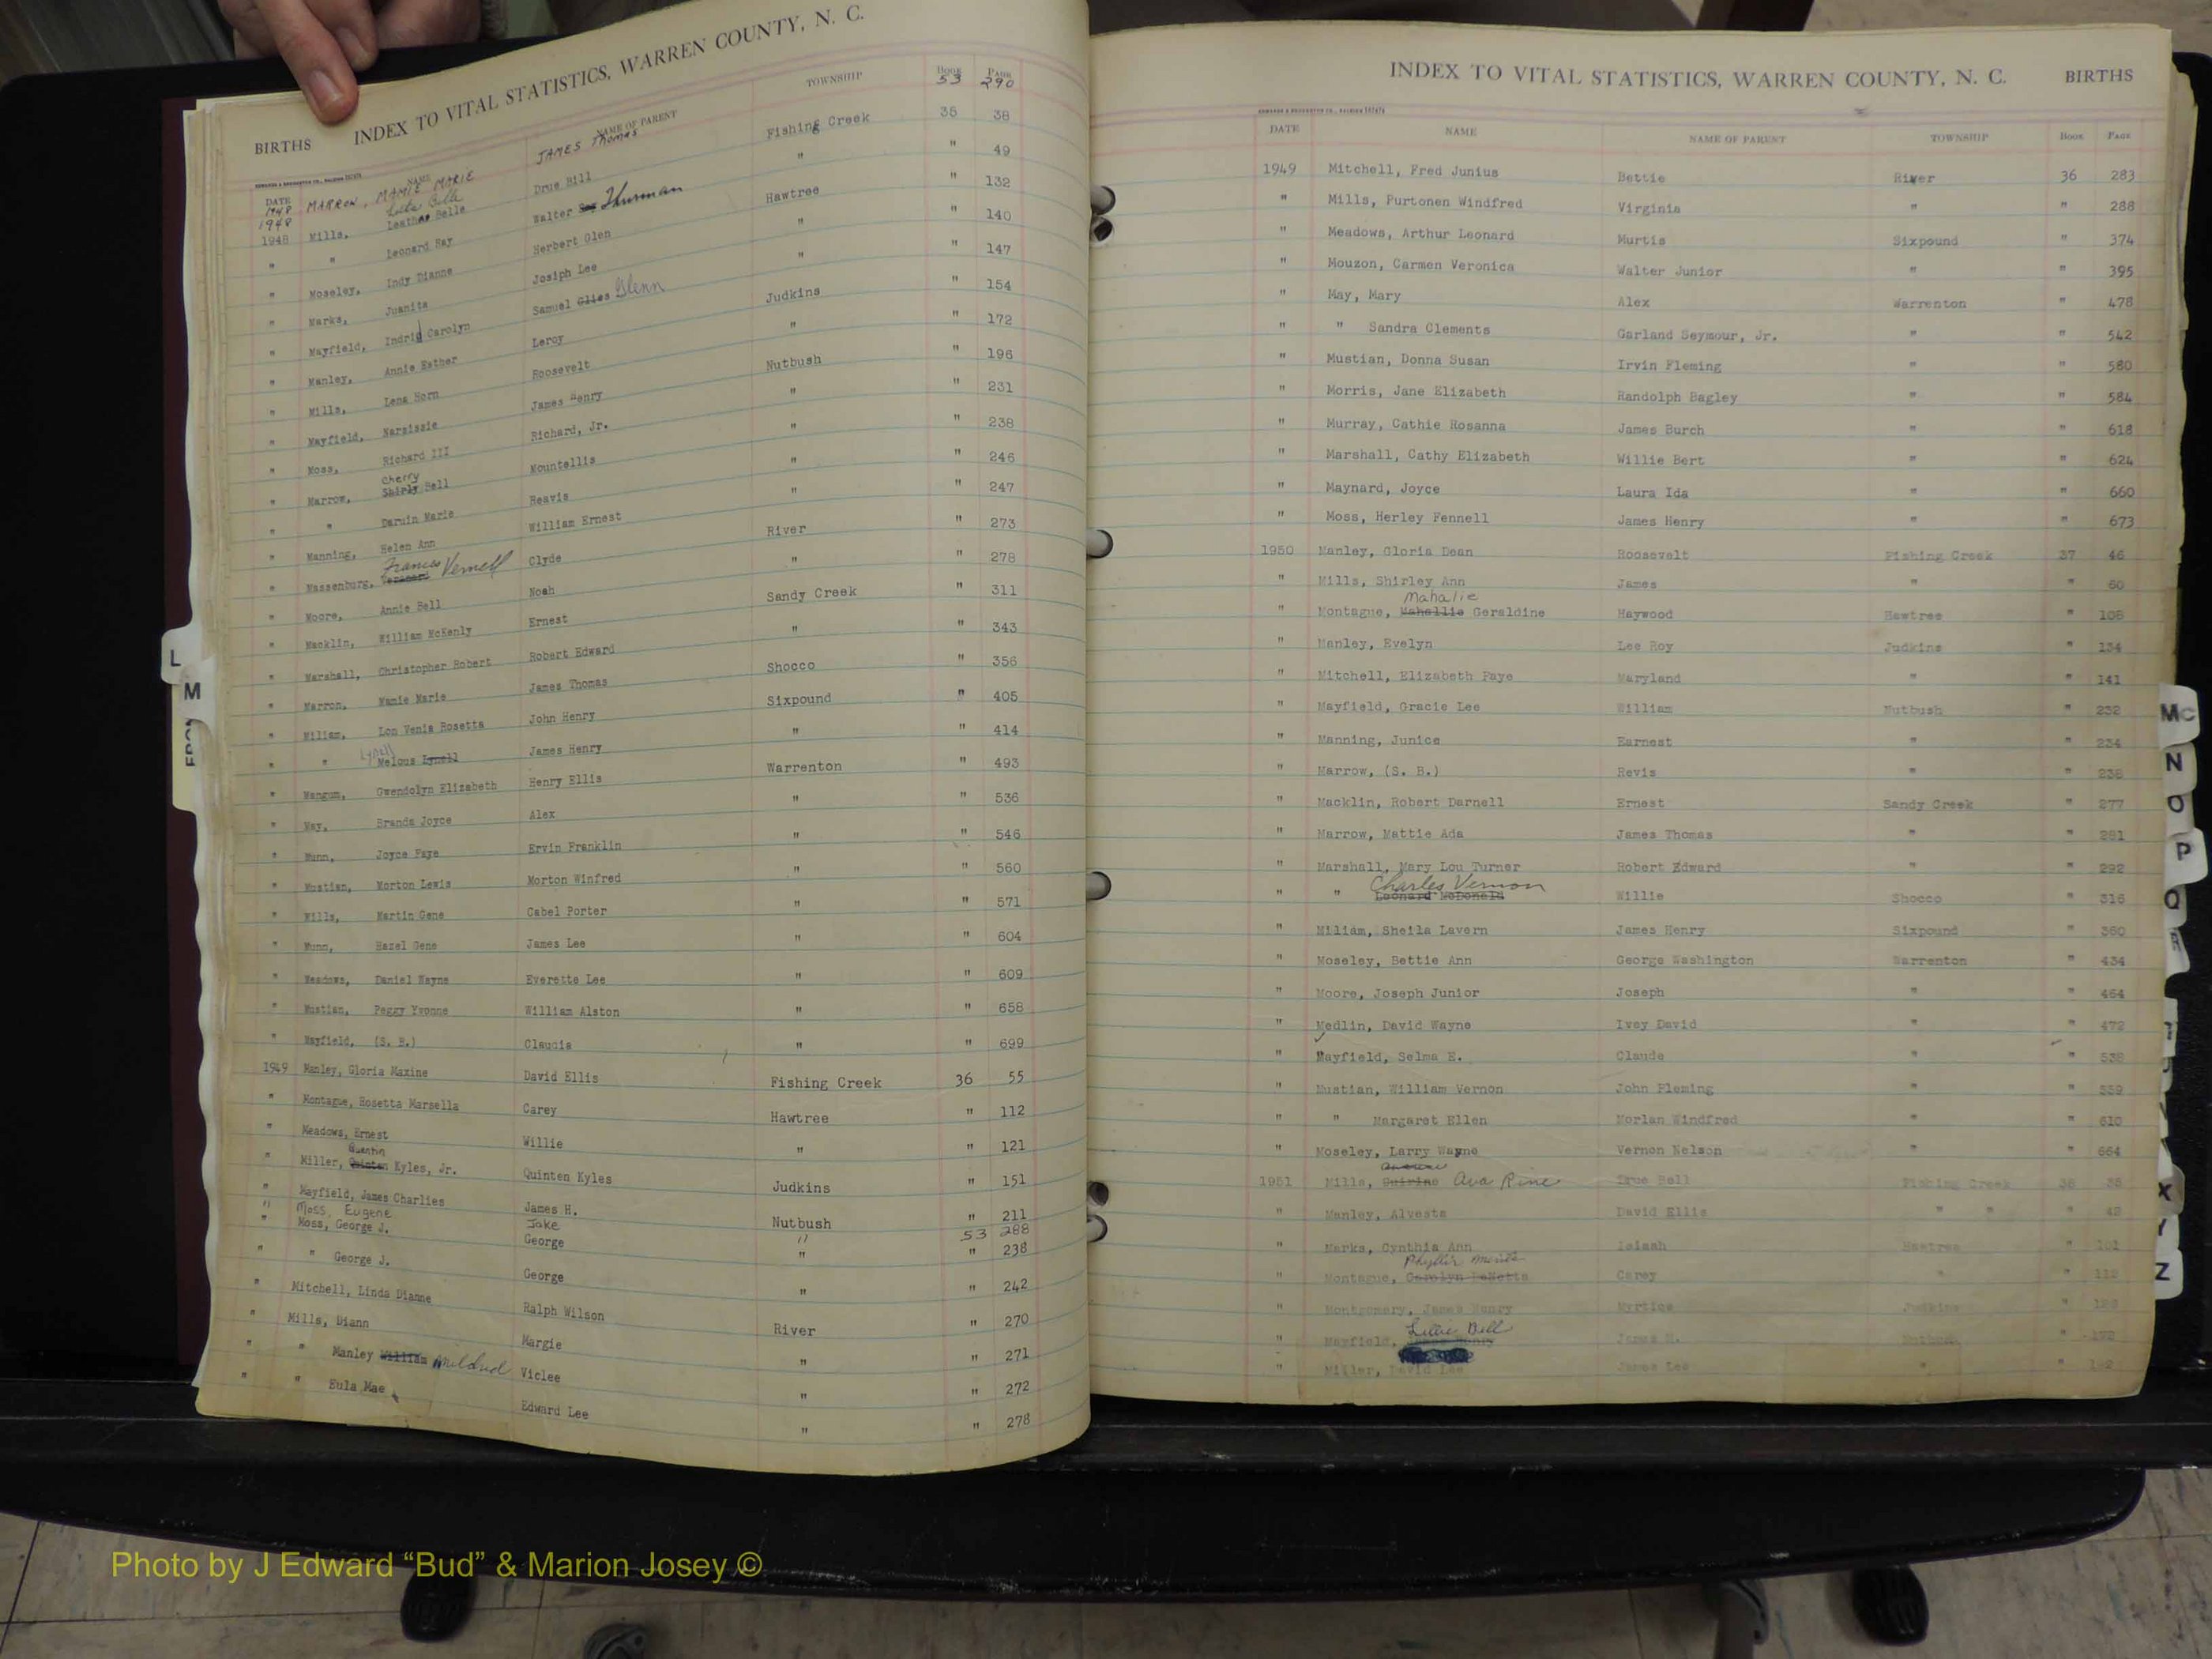 BIRTHS INDEX TO VITAL STATISTICS, WARREN COUNTY, N. C.
DATE NAME NAME OF PARENT TOWNSHIP BOOK PAGE
1948 MARROW, MAMIE MARIE JAMES Thomas 53 290
1948 Mills, Belle Drue Bill Fishing Creek 35 38
" " Leonard Ray Walter Thurman " " 49
" Moseley, Indy Dianne Herbert Glen Hawtree " 132
" Marks, Juanita Josiph Lee " " 140
" Mayfield, Indrid Carolyn Samuel Glies Glenn " " 147
" Manley, Annie Esther Leroy Judkins " 154
" Mills, Lena Horn Roosevelt " " 172
" Mayfield, Narsissie James Henry Nutbush " 196
" Moss, Richard III Richard, Jr. " " 231
" Marrow, Cherry Shirly Bell Mountellis " " 238
" " Daruin Marie Reavis " " 246
" Manning, Helen Ann William Ernest " " 247
" Massenburg, Frances Vernell Clyde River " 273
" Moore, Annie Bell Noah " " 278
" Macklin, William McKenly Ernest Sandy Creek " 311
" Marshall, Christopher Robert Robert Edward " " 343
" Marron, Mamie Marie James Thomas Shocco " 356
" Miliam, Lon Venis Rosetta John Henry Sixpound " 405
" " Lynell Melous Lynell James Henry " " 414
" Mangum, Gwendolyn Elizabeth Henry Ellis Warrenton " 493
" May, Brands Joyce Alex " " 536
" Munn, Joyce Faye Ervin Franklin " " 546
" Mustian, Morton Lewis Morton Winfred " " 560
" Mills, Martin Gene Cabel Porter " " 571
" Munn, Hazel Gene James Lee " " 604
" Meadows, Daniel Wayne Everette Lee " " 609
" Mustian, Peggy Yvonne William Alston " " 658
" Mayfield, (S. B.) Claudia " " 699
1949 Manley, Gloria Maxine David Ellis Fishing Creek 36 55
" Montague, Rosetta Marsella Carey Hawtree " 112
" Meadows, Ernest Willie " " 121
" Miller, Quentin Quinten Kyles, Jr. Quinten Kyles Judkins " 151
" Mayfield, James Charlies James H. Nutbush " 211
" Moss, Eugene Jake " 53 288
" Moss, George J. George " " 238
" " George J. George " " 242
" Mitchell, Linda Dianne Ralph Wilson River " 270
" Mills, Diann Margie " " 271
" " Manley William Mildred Viclee " " 272
" " Eula Mae Edward Lee " " 278
L
M
INDEX TO VITAL STATISTICS, WARREN COUNTY, N. C. BIRTHS
DATE NAME NAME OF PARENT TOWNSHIP BOOK PAGE
1949 Mitchell, Fred Junius Bettie River 36 283
" Mills, Purtonen Windfred Virginia " " 288
" Meadows, Arthur Leonard Murtis Sixpound " 374
" Mouzon, Carmen Veronica Walter Junior " " 395
" May, Mary Alex Warrenton " 478
" " Sandra Clements Garland Seymour, Jr. " " 542
" Mustian, Donna Susan Irvin Fleming " " 580
" Morris, Jane Elizabeth Randolph Bagley " " 584
" Murray, Cathie Rosanna James Burch " " 618
" Marshall, Cathy Elizabeth Willie Bert " " 624
" Maynard, Joyce Laura Ida " " 660
" Moss, Herley Fennell James Henry " " 673
1950 Manley, Gloria Dean Roosevelt Fishing Creek 37 46
" Mills, Shirley Ann James " " 60
" Montague, Mahalie Mahallie Geraldine Haywood Hawtree " 108
" Manley, Evelyn Lee Roy Judkins " 134
" Mitchell, Elizabeth Faye Maryland " " 141
" Mayfield, Gracie Lee William Nutbush " 232
" Manning, Junice Earnest " " 234
" Marrow, (S. B.) Revis " " 238
" Macklin, Robert Darnell Ernest Sandy Creek " 277
" Marrow, Mattie Ada James Thomas " " 281
" Marshall, Mary Lou Turner Robert Edward " " 292
" " Charles Vernon Leonard McDonald Willie Shocco " 316
" Miliam, Sheila Lavern James Henry Sixpound " 360
" Moseley, Bettie Ann George Washington Warrenton " 434
" Moore, Joseph Junior Joseph " " 464
" Medlin, David Wayne Ivey David " " 472
" Mayfield, Selma E. Claude " " 538
" Mustian, William Vernon John Fleming " " 559
" " Margaret Ellen Morlan Windfred " " 610
" Moseley, Larry Wayne Vernon Nelson " " 664
1951 Mills, Ava Rine True Bell Fishing Creek 38 38
" Manley, Alvesta David Ellis " " " 48
" Marks, Cynthia Ann Isiaah Hawtree " 101
" Montague, Phyllis Carolyn DaNetta Carey " " 112
" Montgomery, James Henry Myrtice Judkins "
" Mayfield, Lillie Bell James H. "
" Miller, David Lee James Lee " "
Mc
N
O
P
Q
R
X
Y
Z
Photo by J Edward “Bud” & Marion Josey ©